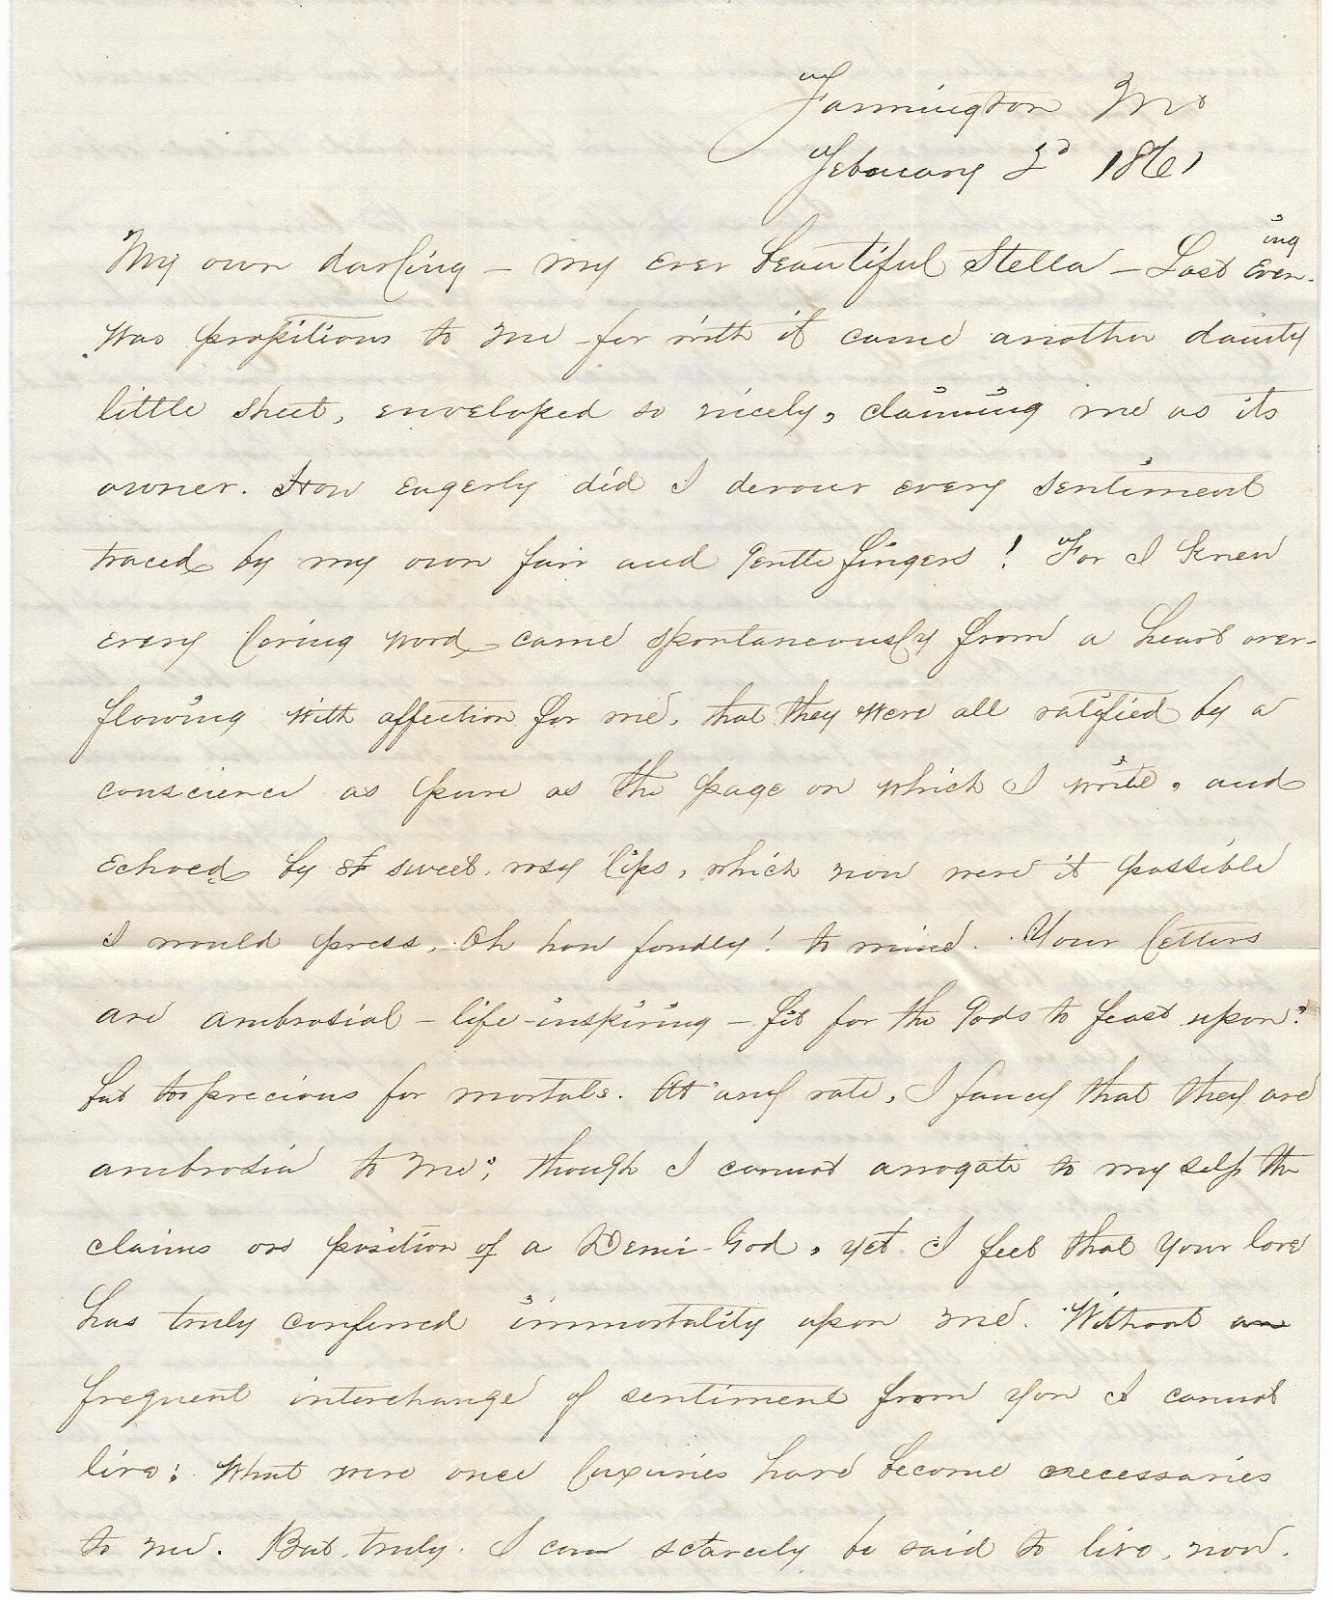 Farmington Me
February 2d 1861
My own darling – my ever beautiful Stella – Last Evening
was propitious to me for with it came another dainty
little sheet, enveloped so nicely, claiming me as its
owner. How eagerly did I devour every sentiment
traced by my own fair and gentle fingers! For I knew
every loving word came spontaneously from a heart over-
flowing with affection for me, that they were all ratified by a
conscience as pure as the page on which I write, and
echoed by sweet, rosy lips, which now were it possible
I would press, Oh how fondly! to mine. Your letters
are ambrosial – life-inspiring – fit for the gods to feast upon:
but too precious for mortals. At any rate, I fancy that they are
ambrosia to me; though I cannot arrogate to myself the
claims or position of a Demi-God, yet I feel that your love
has truly conferred immortality upon me. Without
frequent interchange of sentiment from you I cannot
live: What were once luxuries have become necessaries
to me. But, truly I can sctarcely be said to live, now.